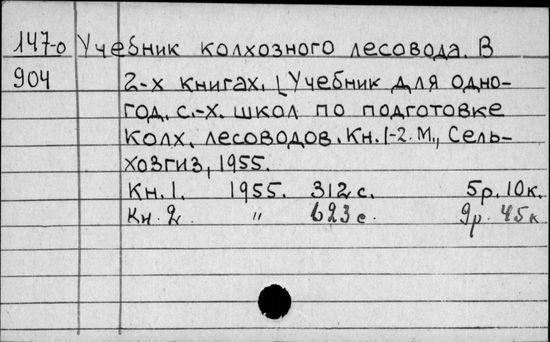 147-о Учебник колхозного лесовода. В
904 2-х книгах. [Учебник для одно-
год. с.-х. школ по подготовке
колх. лесоводов. Кн. 1-2. М., Сель-
хозгиз, 1955.
Кн. 1. 1955. 312 с. 5р. 10к.
Кн. 2. " 623 с. 9р. 45к